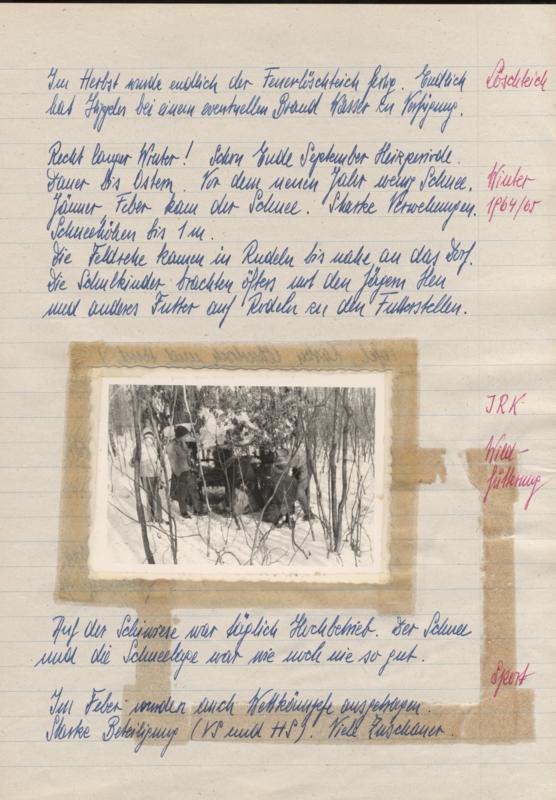 Im Herbst wurde endlich der Feuerlöschteich fertig. Endlich
hat bei einem eventuellen Brand Wasser zu Verfügung.
Löschteich
Recht langer Winter! Schon Ende September Heizperiode.
Dauer bis Ostern. Vor dem neuen Jahr wenig Schnee.
Jänner Feber kam der Schnee. Starke Verwehungen.
Schneehöhen bis 1 m.
Winter
1964/65
Die Feldrehe kamen in Rudeln bis nahe an das Dorf.
Die Schulkinder brachten öfters mit den Jägern Heu
und anderes Futter auf Rodeln zu den Futterstellen.
JRK
Wild-
fütterung
Auf der Schiwiese war täglich Hochbetrieb. Der Schnee
und die Schneelage war wie noch nie so gut.
Sport
Im Feber wurden auch Wettkämpfe ausgetragen.
Starke Beteiligung (VS und HS). Viele Zuschauer.